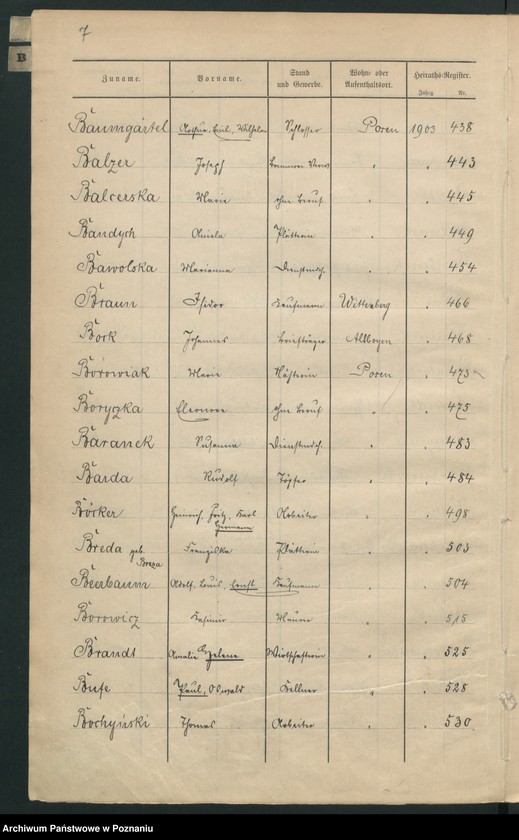 7
B
Zuname. Vorname. Stand und Gewerbe. Wohn- oder Aufenthaltsort. Heiraths-Register.
Jahrg. Nr.
Baumgärtel Arthur, Emil, Wilhelm Schlosser Posen 1903 438
Balzer Joseph " " 443
Balcerska Marie ohne Beruf " " 445
Bandych Aniela Plätterin " " 449
Bawolska Marianna Dienstmdch. " " 454
Braun Isidor Kaufmann Wittenberg " 466
Bork Johannes Briefträger " 468
Borowiak Marie Näherin Posen " 473
Boryczka Eleonore ohne Beruf " " 475
Baranek Susanna Dienstmdch. " " 483
Barda Rudolf Töpfer " " 484
Böcker Heinrich, Fritz, Karl Hermann Arbeiter " " 498
Breda geb. Breza Franziska Plätterin " " 503
Beerbaum Adolf, Louis, Ernst Kaufmann " " 504
Borowicz Kasimir Maurer " " 515
Brandt Amalie Helene Wirthschafterin " " 525
Bufe Paul, Oswald Kellner " " 528
Bochyński Thomas Arbeiter " " 530
Archiwum Państwowe w Poznaniu